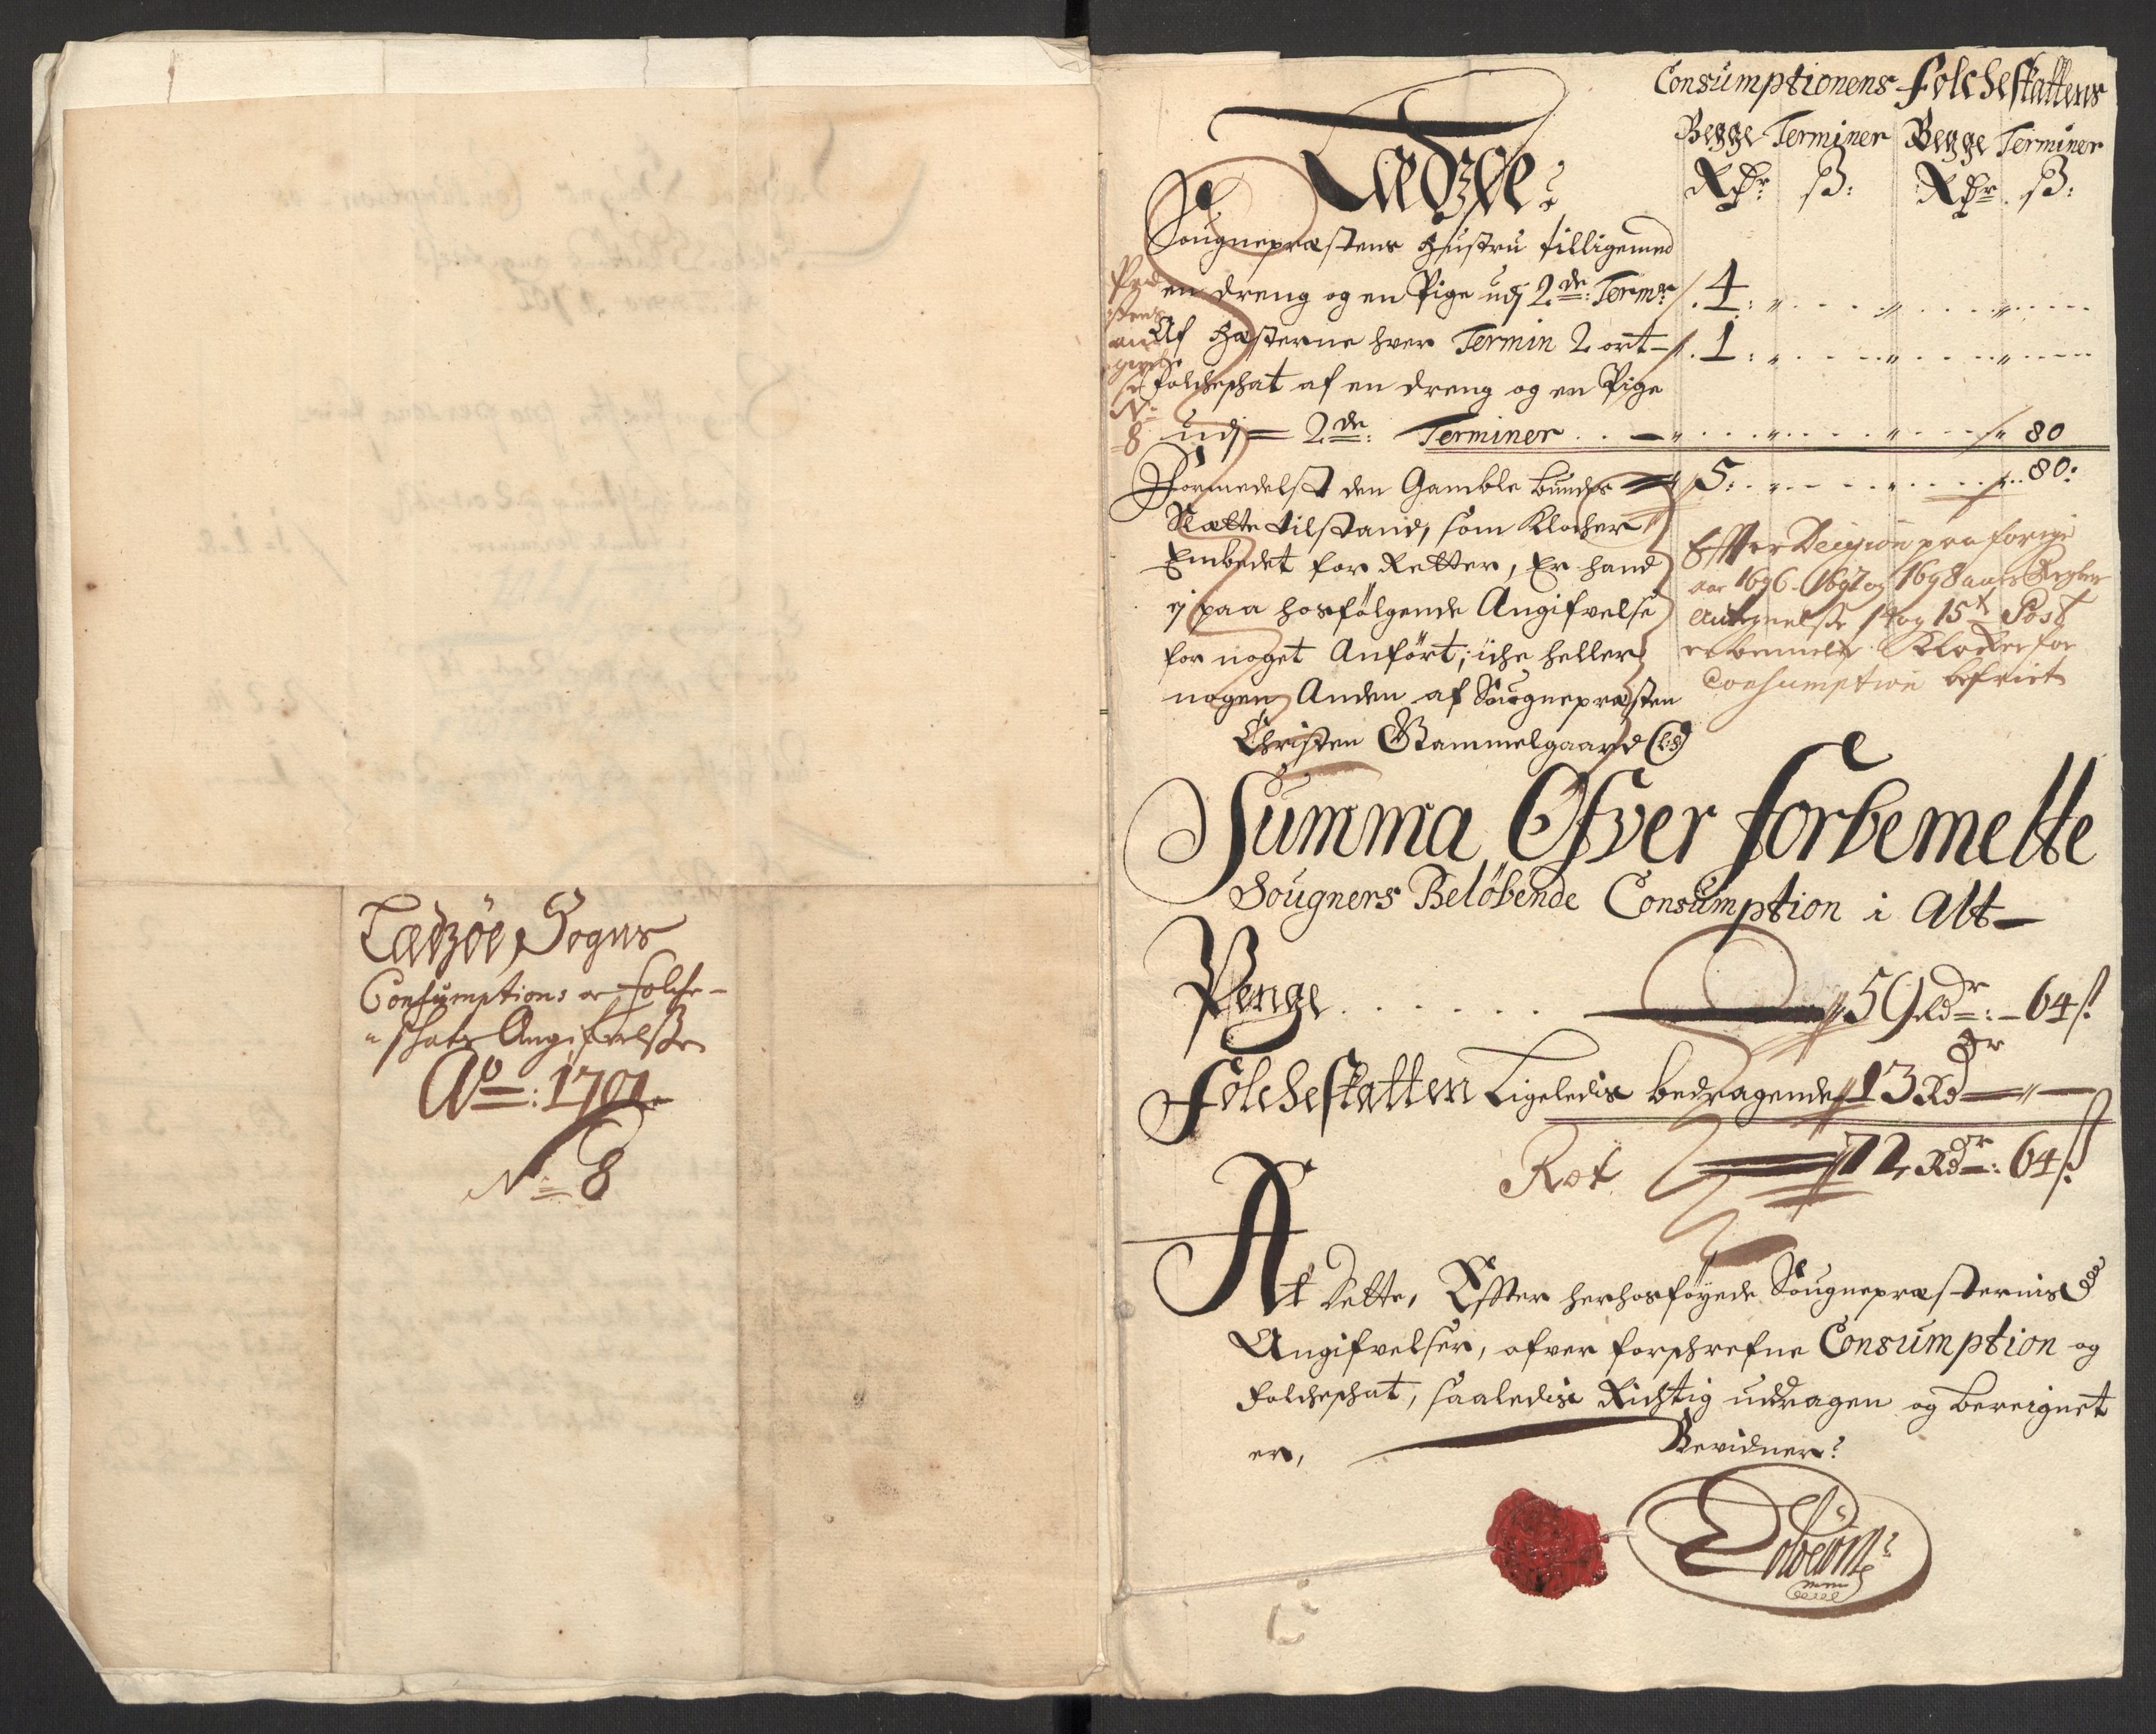 Tædzöe, Sogns
Consumptions oc folche-
schats Angifvelsse
Ao: 1701
No 8
Consumptionens Folcheskattens
Begge Terminer Begge Terminer
Rdr ß: Rdr ß:
Tædzöe:
Sougnepræstens Hustru tilligemed
en dreng og en Pige udj 2de: Termr 4:
Af Hæsterne hver Termin 2 ort 1:
folcheschat af en dreng og en Pige
udj 2de: Terminer 80
5: 80:
Præ
stens
an
givelse
No
8
Formedelst den Gamble bundes
Slætte tilstand, som Klocher
Embedet for Retter, Er hand
ej paa hosfölgende Angifvelse
for noget Anfört, iche heller
nogen Anden af Sougnepræsten
Christen Gammelgaard (LS)
Effter Decision paa forige
aar 1696. 1697 og 1698 aars Regnsk
Antegnelse 14 og 15de Post
er bemelte Klocker for
Consumption befriet
Summa Ofver forbemelte
Sougners Belöbende Consumption i Alt
Penge 59 Rdr: 64 ß
Folcheskatten Ligeledis bedragende 13 Rdr
Ræt 72 Rdr: 64 ß
At dette, Effter herhosföyede Sougnepræsternis
Angifvelser, ofver forschrefne Consumption og
folcheschat, saaledis Richtig uddragen og bereignet
er, Bevidner: